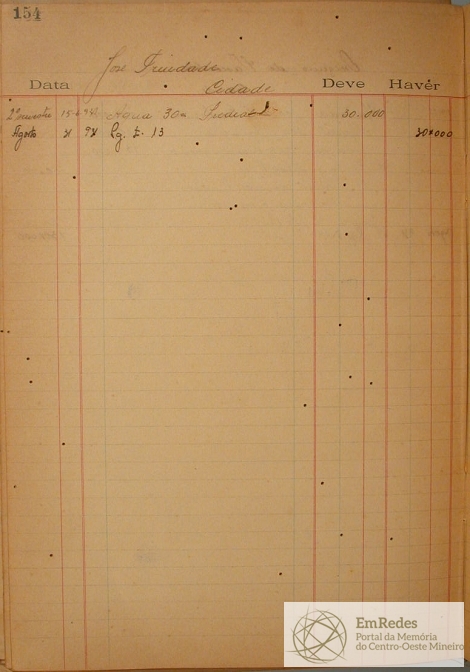 154
José Trindade
Cidade
Data Deve Haver
2º semestre 15-6 Agua 30 30.000
Agosto 21 Pg. t. 13 30$000
EmRedes
Portal da Memória
do Centro-Oeste Mineiro